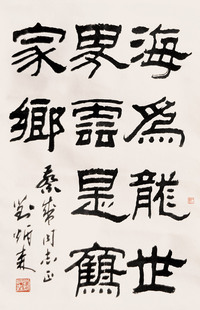 海為龍世
界雲是鶴
家鄉
同志正
劉炳森